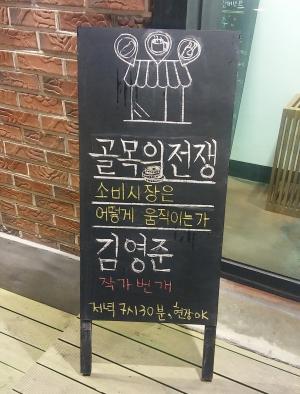 골목의전쟁
소비시장은
어떻게 움직이는가
김영준
작가번개
저녁 7시30분, 현장OK